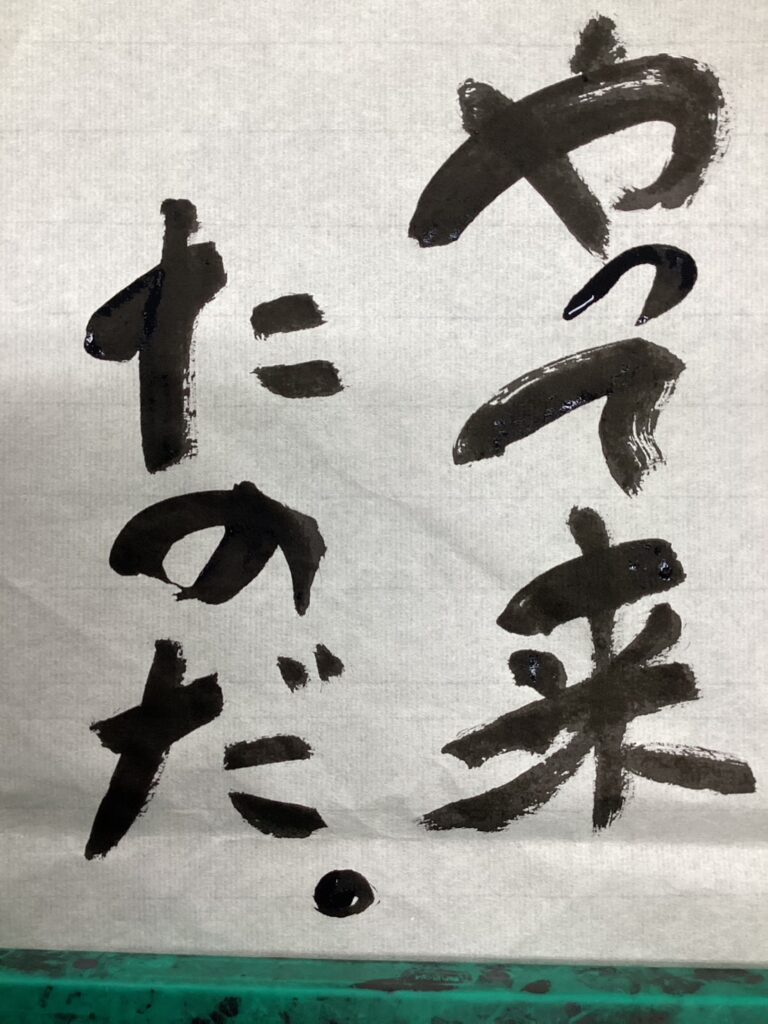 やって来
たのだ。